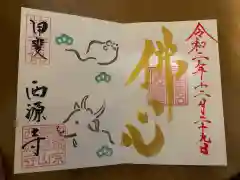 令和二年十二月二十九日
佛心
甲斐
西源寺